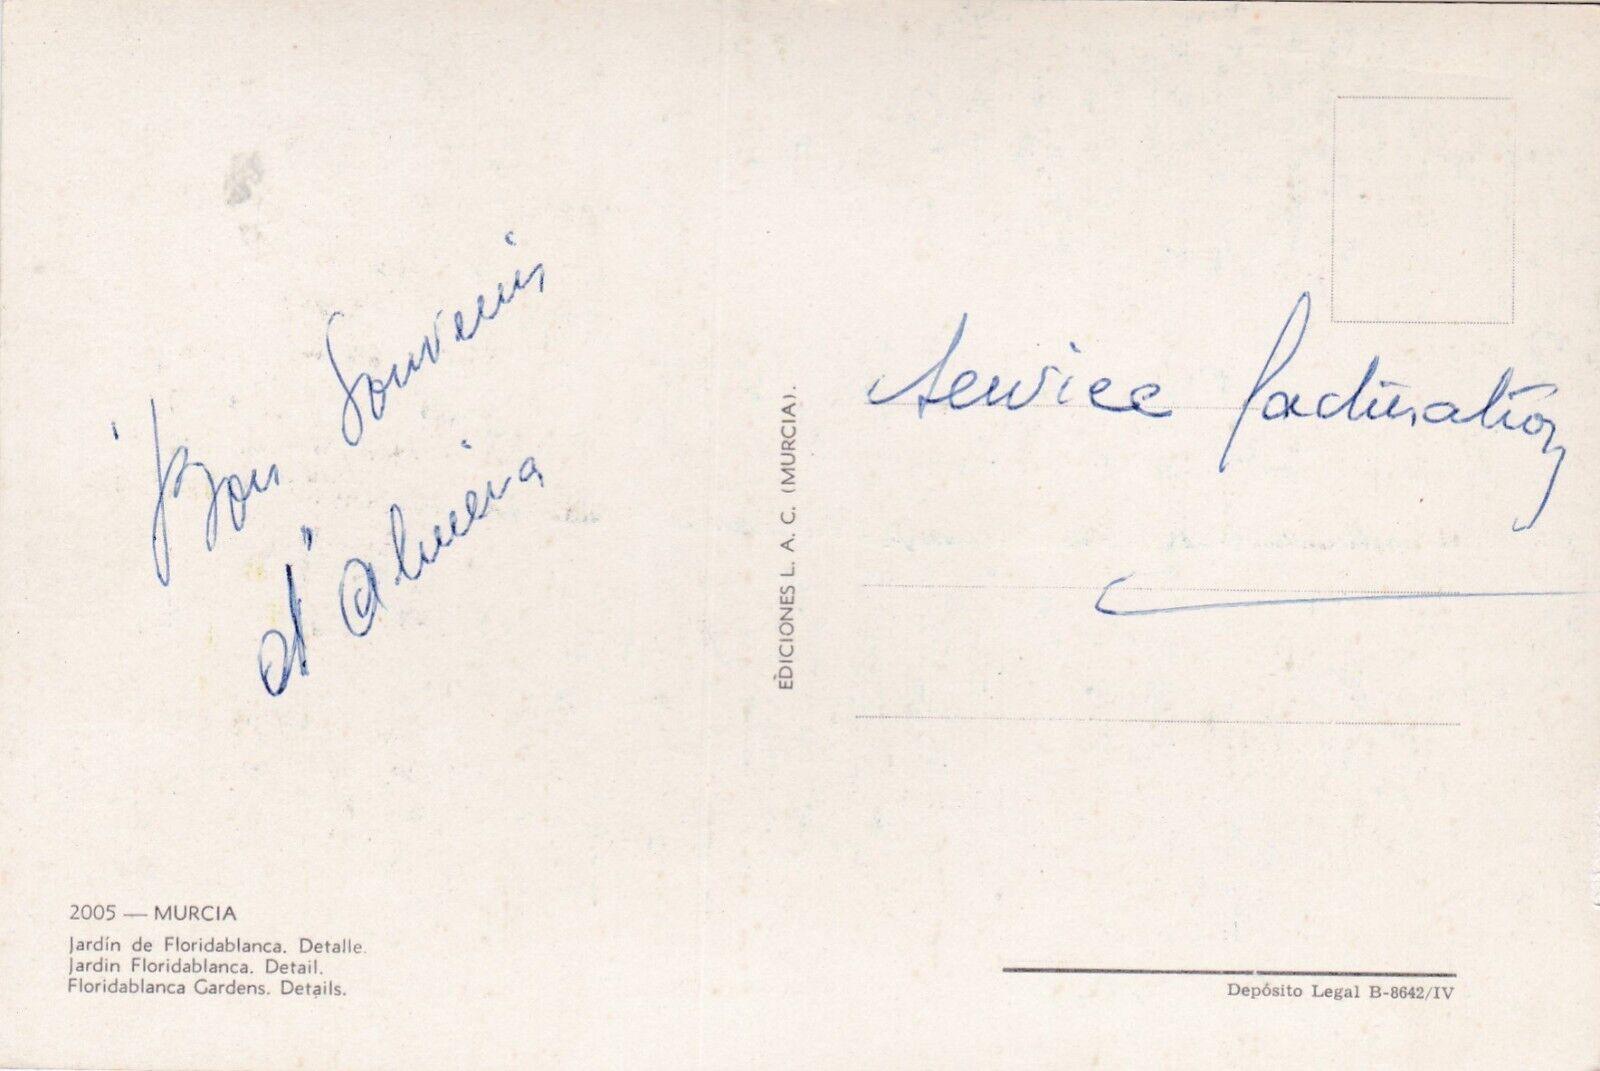 Bon Souvenir
d'Almeria
EDICIONES L. A. C. (MURCIA).
Service facturation
2005 — MURCIA
Jardín de Floridablanca. Detalle.
Jardin Floridablanca. Detail.
Floridablanca Gardens. Details.
Depósito Legal B-8642/IV